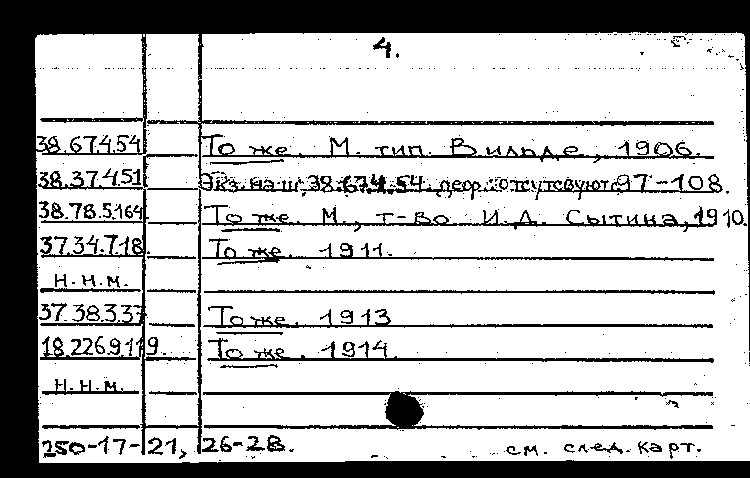 4.
38.67.4.54 То же. М. тип. Вильде, 1906.
38.37.4.51 Экз. на ш. 38.67.4.54. дефр.: отсутсвуют с. 97-108.
38.78.5.164 То же. М., т-во И.Д. Сытина, 1910.
37.34.7.18. То же. 1911.
Н.Н.М.
37.38.3.37 То же. 1913
18.226.9.119. То же. 1914.
Н.Н.М.
250-17-21, 26-28. см. след. карт.